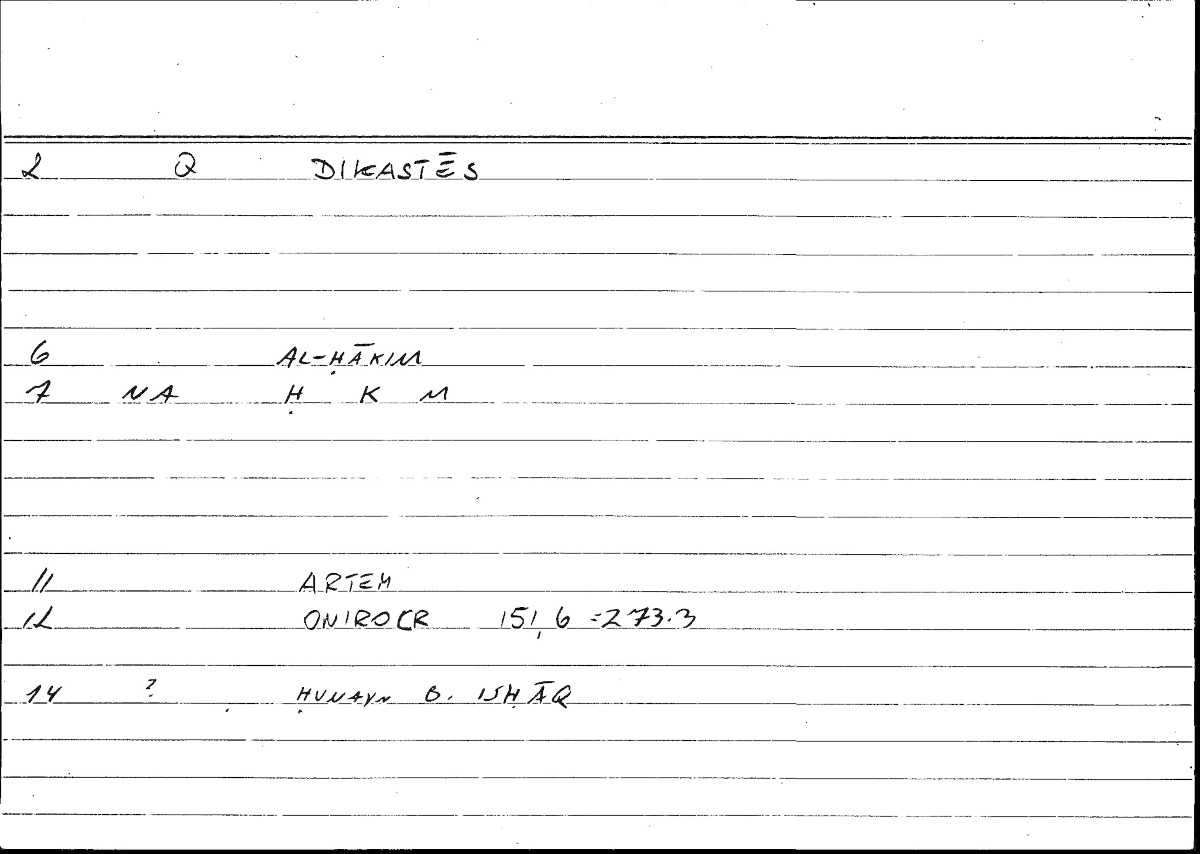 2 Q DIKASTĒS
6 AL-ḤĀKIM
7 NA Ḥ K M
11 ARTEM
12 ONIROCR 151,6 =273.3
14 ? ḤUNAYN B. ISḤĀQ